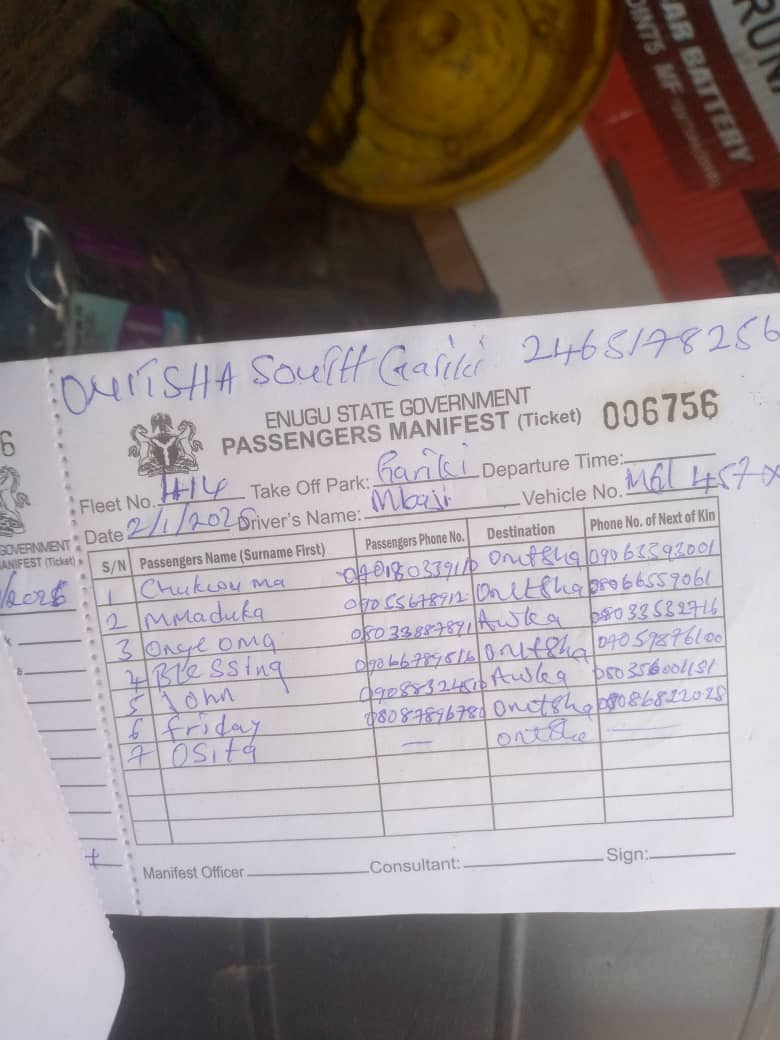 RUN
AR BATTERY
DIN75 MF
ONITSHA South Gariki 2465178256
ENUGU STATE GOVERNMENT
PASSENGERS MANIFEST (Ticket) 006756
Fleet No. #14 Take Off Park: Gariki Departure Time:
Date 2/1/2026 Driver's Name: Mbasi Vehicle No. MGL 457
S/N Passengers Name (Surname First) Passengers Phone No. Destination Phone No. of Next of Kin
1 Chukwuma Onitsha 09063593001
2 MMaduka 09055678912 Onitsha 08066557061
3 Onyeoma 08033887891 Awka 08033532716
4 Blessing 09066789516 Onitsha 09059876100
5 John Awka
6 friday 08087896780 Onitsha 08086822028
7 OSita — Onitsha —
Manifest Officer Consultant: Sign:
6
GOVERNMENT
ANIFEST (Ticket)
/2026